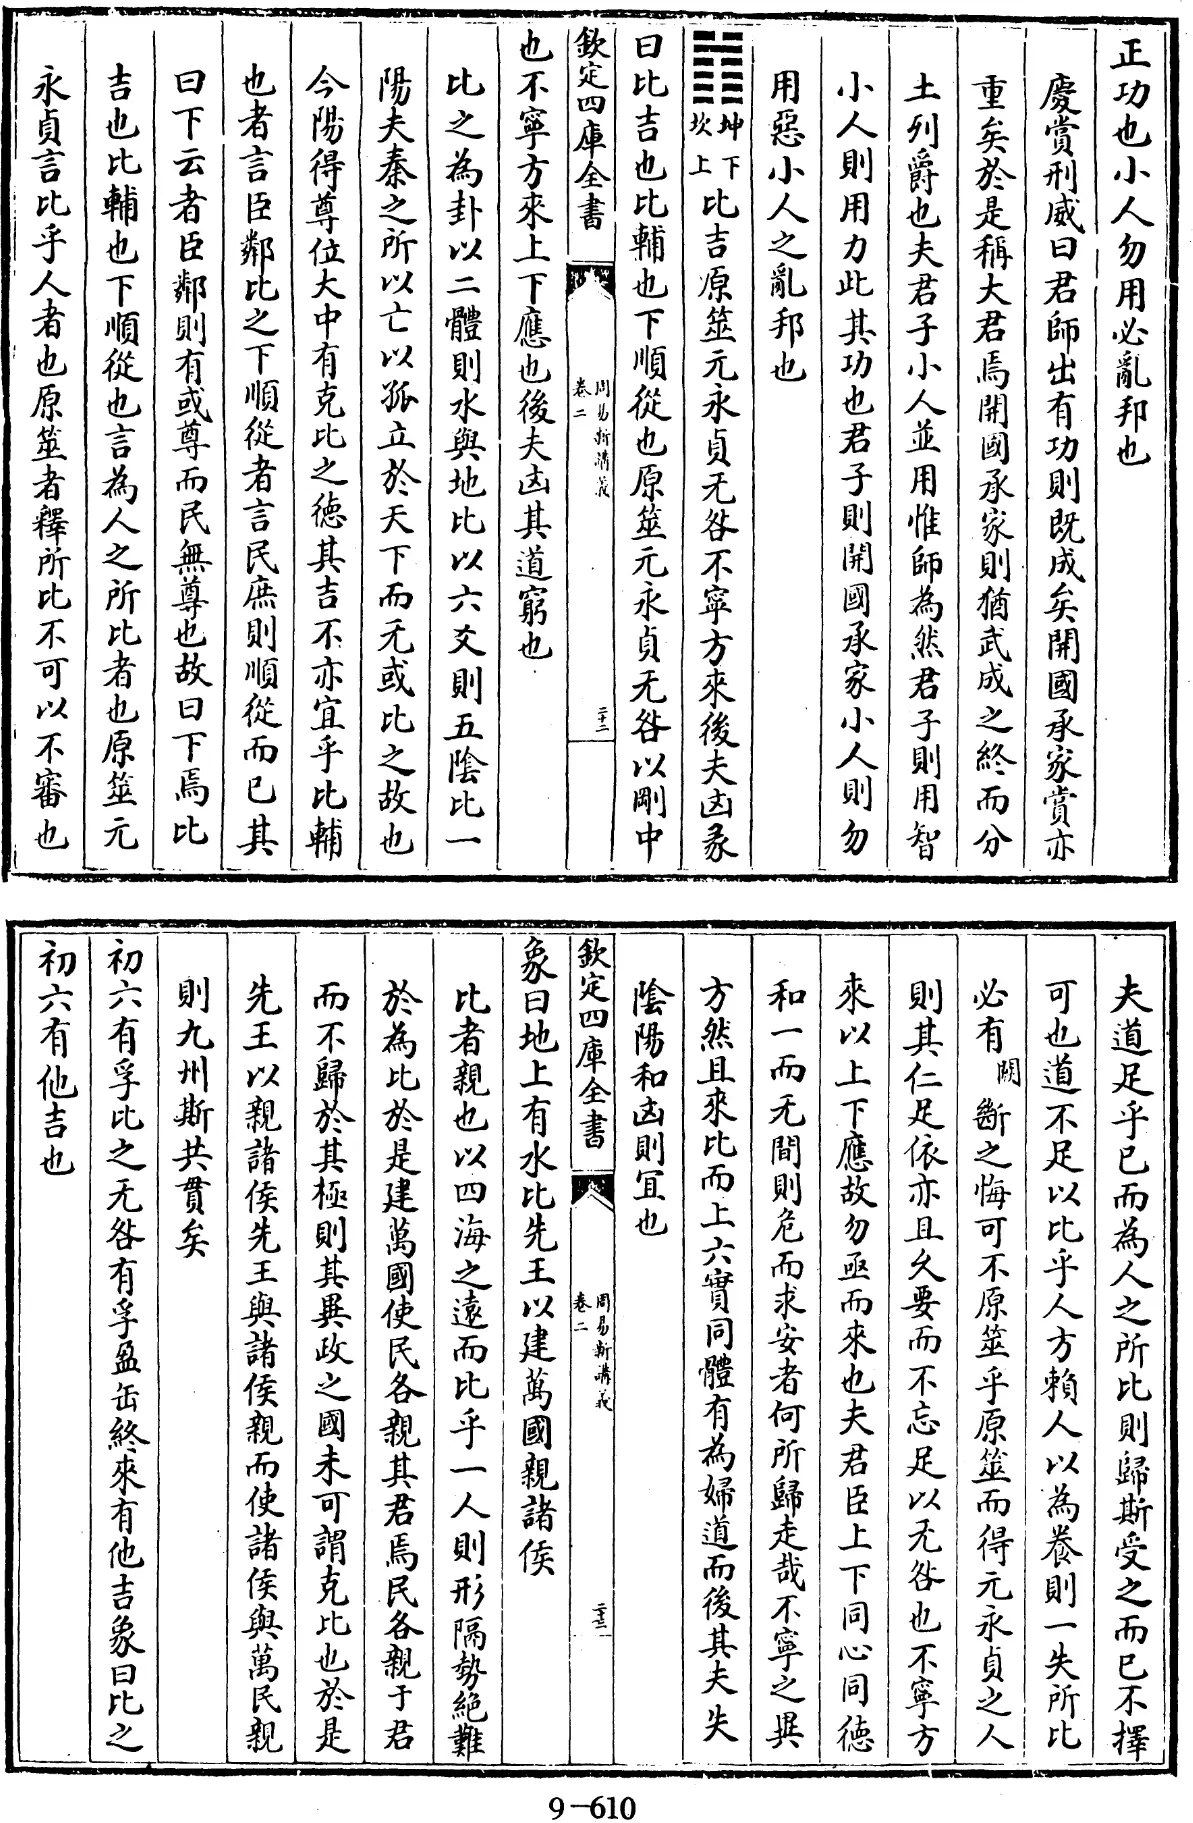 正功也小人勿用必亂邦也
慶賞刑威曰君師出有功則既成矣開國承家賞亦
重矣於是稱大君焉開國承家則猶武成之終而分
土列爵也夫君子小人並用惟師為然君子則用智
小人則用力此其功也君子則開國承家小人則勿
用惡小人之亂邦也
䷇坤下坎上比吉原筮元永貞无咎不寧方來後夫凶彖
曰比吉也比輔也下順從也原筮元永貞无咎以剛中
欽定四庫全書
周易新講義
卷二
二十二
也不寧方來上下應也後夫凶其道窮也
比之為卦以二體則水與地比以六爻則五陰比一
陽夫秦之所以亡以孤立於天下而无或比之故也
今陽得尊位大中有克比之德其吉不亦宜乎比輔
也者言臣鄰比之下順從者言民庶則順從而已其
曰下云者臣鄰則有或尊而民無尊也故曰下焉比
吉也比輔也下順從也言為人之所比者也原筮元
永貞言比乎人者也原筮者釋所比不可以不審也
夫道足乎已而為人之所比則歸斯受之而已不擇
可也道不足以比乎人方賴人以為養則一失所比
必有闕斷之悔可不原筮乎原筮而得元永貞之人
則其仁足依亦且久要而不忘足以无咎也不寧方
來以上下應故勿亟而來也夫君臣上下同心同德
和一而无間則危而求安者何所歸走哉不寧之異
方然且來比而上六實同體有為婦道而後其夫失
陰陽和凶則宜也
欽定四庫全書
周易新講義
卷二
二十三
象曰地上有水比先王以建萬國親諸侯
比者親也以四海之遠而比乎一人則形隔勢絶難
於為比於是建萬國使民各親其君焉民各親于君
而不歸於其極則其異政之國未可謂克比也於是
先王以親諸侯先王與諸侯親而使諸侯與萬民親
則九州斯共貫矣
初六有孚比之无咎有孚盈缶終來有他吉象曰比之
初六有他吉也
9-610